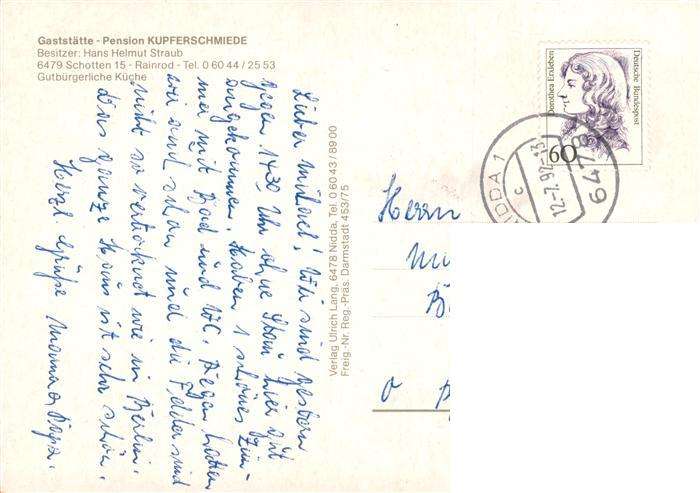 Gaststätte - Pension KUPFERSCHMIEDE
Besitzer: Hans Helmut Straub
6479 Schotten 15 - Rainrod - Tel. 0 60 44 / 25 53
Gutbürgerliche Küche
Lieber Michael! Wir sind gestern
gegen 14³⁰ Uhr ohne Stau hier gut
angekommen. Haben 1 schönes Zim-
mer mit Bad und WC. Regen hatten
wir auch schon und die Felder sind
nicht so vertrocknet wie in Berlin.
Das ganze Haus ist sehr schön.
Herzl. Grüße Mama & Papa.
Verlag Ulrich Lang, 6478 Nidda, Tel. 0 60 43 / 89 00
Freig.-Nr. Reg.-Präs. Darmstadt 453/75
Dorothea Erxleben
Deutsche Bundespost
60
NIDDA 1
c
12.-7.92-13
6478
Herrn